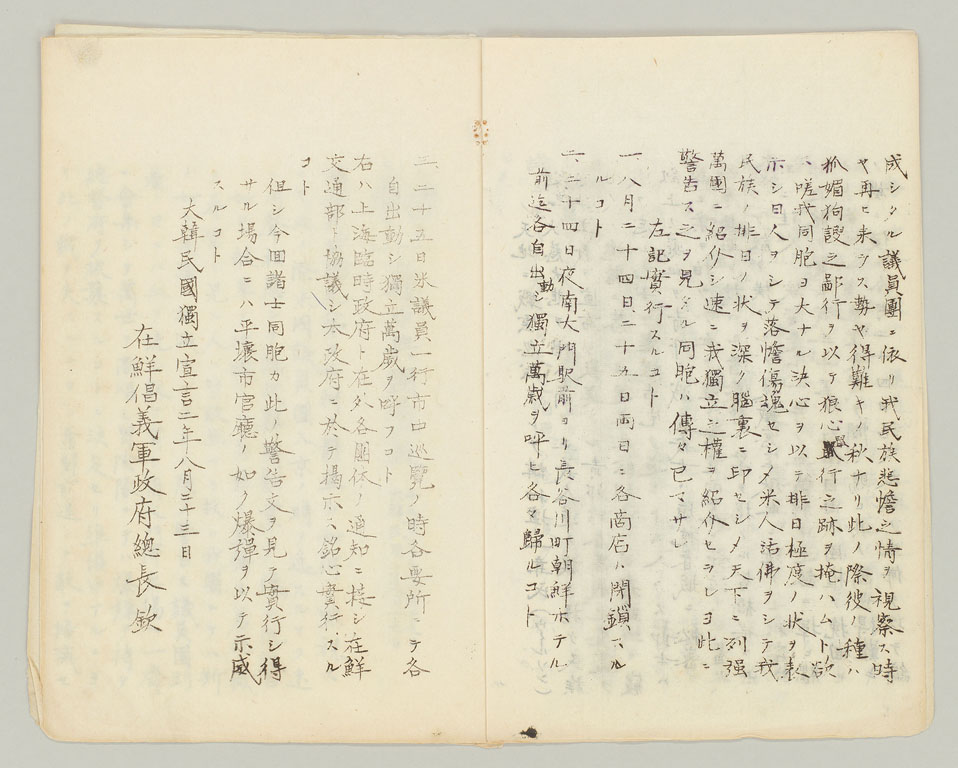 成シタル議員團ニ依リ我民族悲憺之情ヲ視察ス時
ヤ再ヒ来ラス勢ヤ得難キノ秋ナリ此ノ際彼ノ種ハ
狐媚狗謖之鄙行ヲ以テ狼心行之跡ヲ掩ハムト欲
ス嗟我同胞ヨ大ナル決心ヲ以テ排日極度ノ状ヲ表
示シ日人ヲシテ落憺傷魂セシメ米人活佛ヲシテ我
民族ノ排日ノ状ヲ深ク腦裏ニ印セシメ天下ニ列强
萬國ニ紹介シ速ニ我獨立之權ヲ紹介セラレヨ此ニ
警告ス之ヲ見タル同胞ハ傳々已マサレ
左記實行スルコト
一、八月二十四日、二十五日両日ニ各商店ハ閉鎖スル
ルコト
二、二十四日夜南大門駅前ヨリ長谷川町朝鮮ホテル
前迄各自出動シ獨立萬歳ヲ呼ヒ各々歸ルコト
三、二十五日米議員一行市中巡覽ノ時各要所ニテ各
自出動シ獨立萬歳ヲ呼フコト
右ハ上海臨時政府ト在外各團体ノ通知ニ接シ在鮮
交通部ト協議シ本政府ニ於テ揭示ス銘心實行スル
コト
但シ今回諸士同胞カ此ノ警告文ヲ見テ實行シ得
サル場合ニハ平壤市官廳ノ如ク爆彈ヲ以テ示威
スルコト
大韓民國獨立宣言二年八月二十三日
在鮮倡義軍政府總長 欽